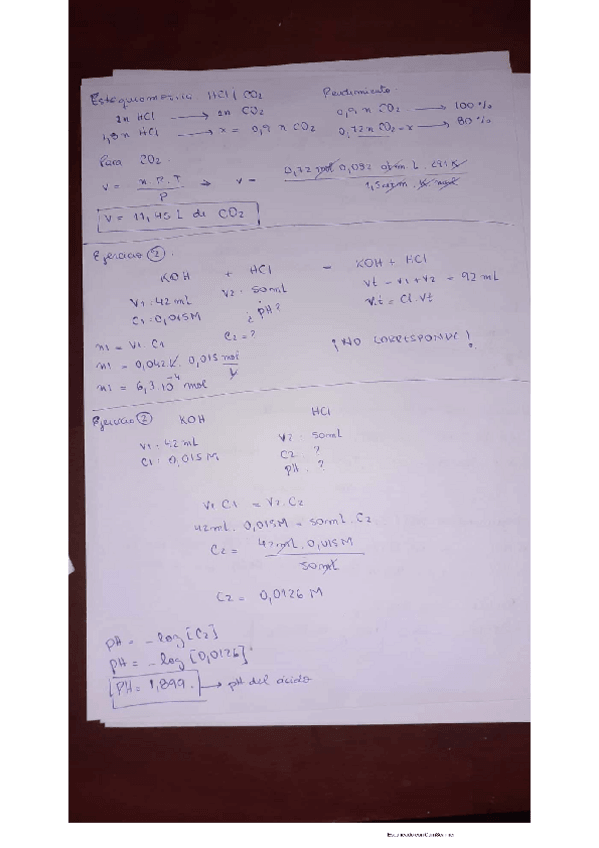 Estequiometria HCl y CO2
2n HCl → 2n CO2
1,8n HCl → x = 0,9 n CO2
Rendimiento
0,9 n CO2 → 100 %
0,72 n CO2 = x → 80 %
Para CO2.
V = n.R.T / P ⇒ V = 0,72 mol 0,082 atm. L. K / atm. K. mol
V = 11,45 L de CO2
Ejercicio 2.
KOH + HCl = KOH + HCl
V1: 42 mL V2: 50 mL Vt = V1 + V2 = 92 mL
C1 = 0,015M ¿pH? = Ct. Vt
C2 = ?
n1 = V1. C1
n1 = 0,042 L. 0,015 mol / L
n1 = 6,3. 10^-4 mol
¡NO CORRESPONDE!
Ejercicio 2 KOH HCl
V1: 42 mL V2: 50mL
C1: 0,015 M C2 ?
pH. ?
V1 C1 = V2. C2
42mL. 0,015M = 50mL. C2
C2 = 42mL. 0,015M / 50mL
C2 = 0,0126 M
pH = -log [C2]
pH = -log [0,0126]
pH = 1,899. → pH del ácido
Escaneado con CamScanner